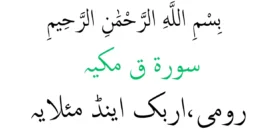 بِسْمِ اللَّهِ الرَّحْمَٰنِ الرَّحِيمِ
سورة ق مكيہ
رومی،اربک اینڈ مئلایہ